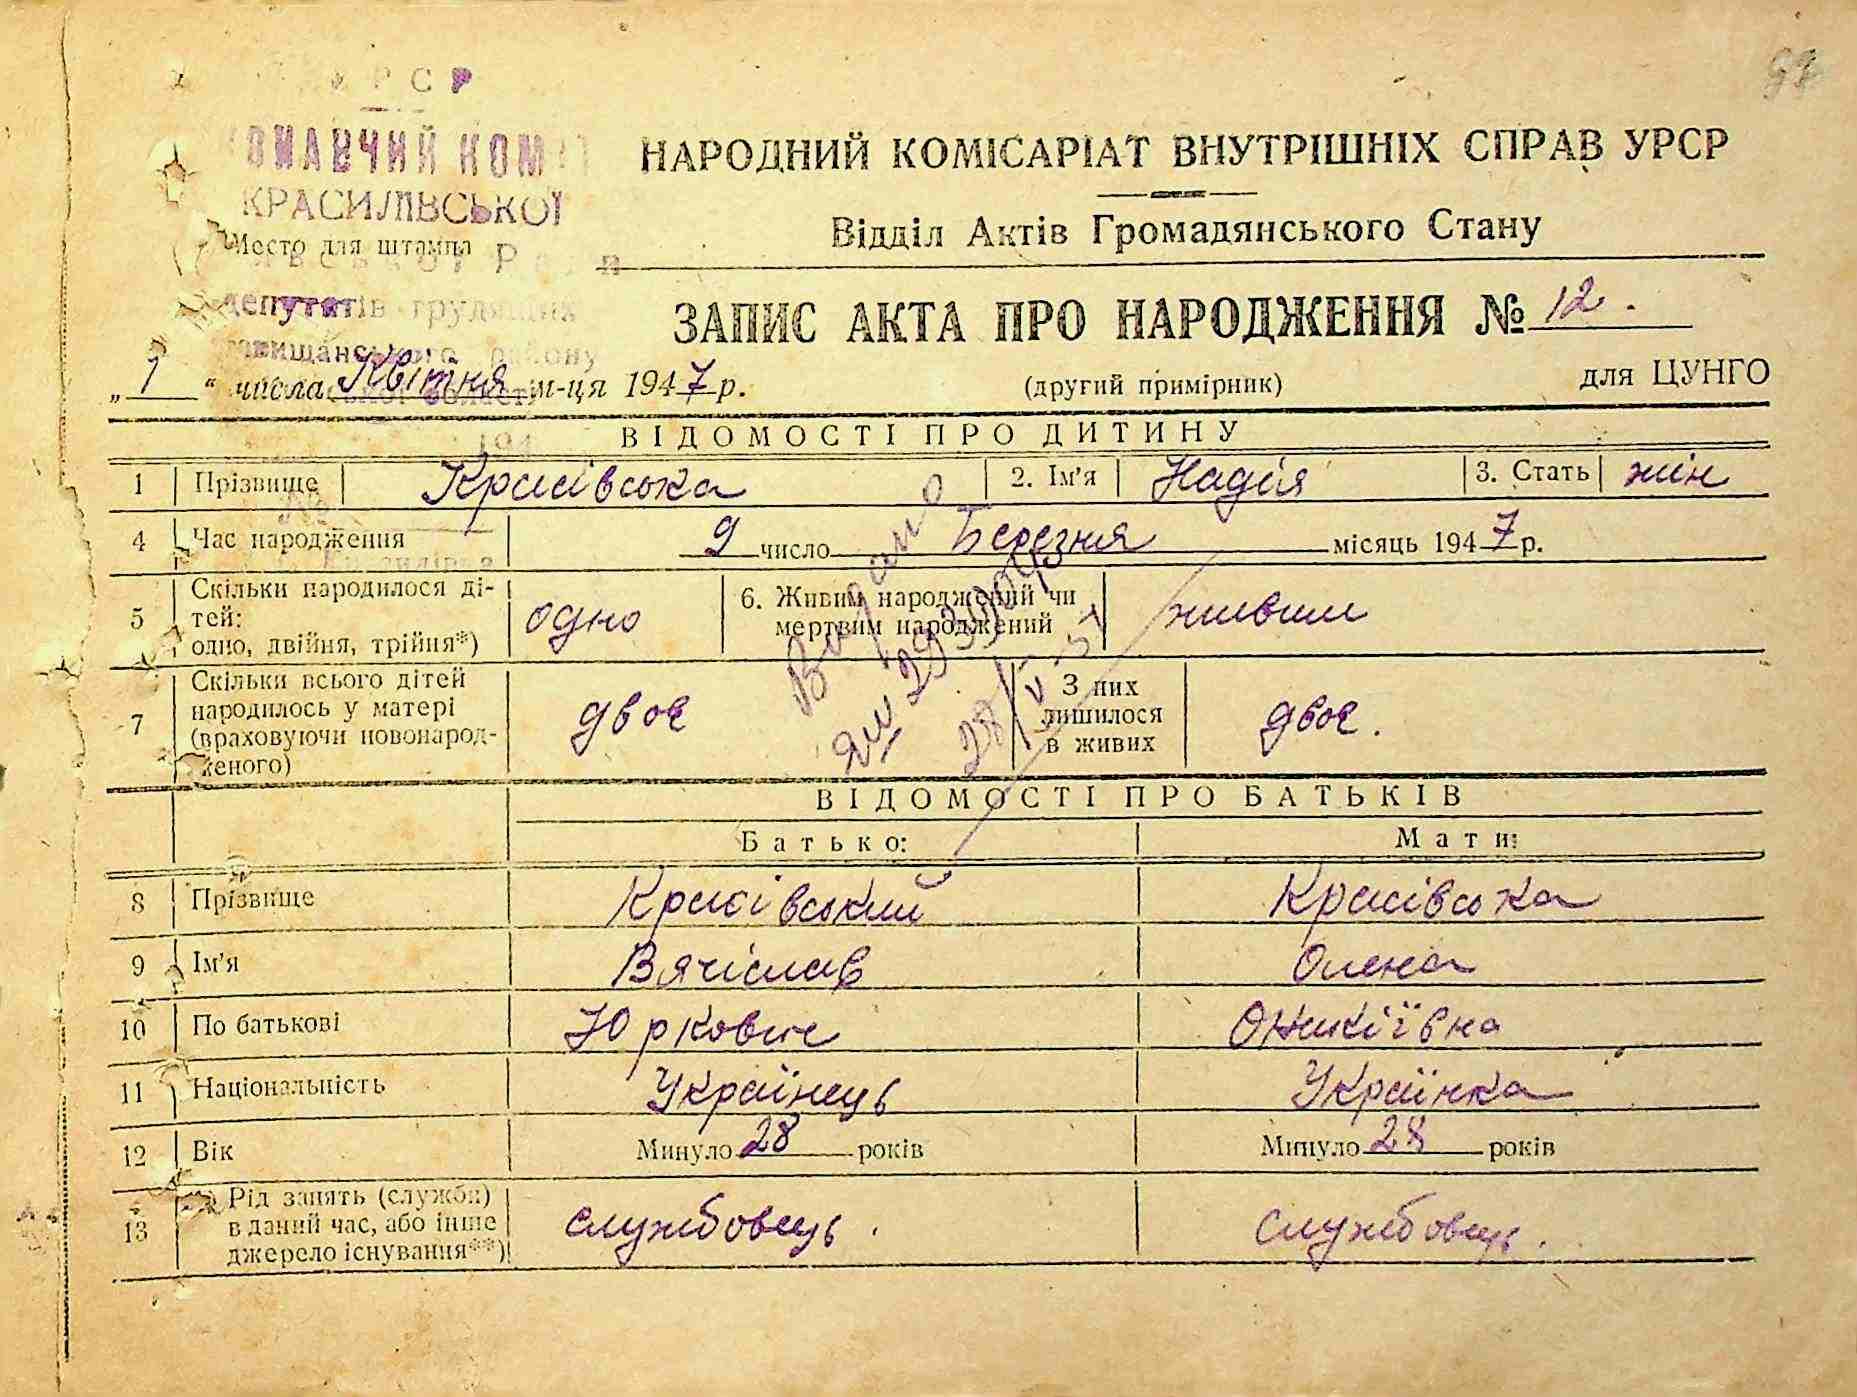 РСР
ОНАВЧИЙ КОМ
КРАСИЛІВСЬКОЇ
Место для штампа
депутатів трудящих
НАРОДНИЙ КОМІСАРІАТ ВНУТРІШНІХ СПРАВ УРСР
Відділ Актів Громадянського Стану
ЗАПИС АКТА ПРО НАРОДЖЕННЯ № 12.
„1“ числа Квітня м-ця 1947 р. (другий примірник) для ЦУНГО
ВІДОМОСТІ ПРО ДИТИНУ
1 Прізвище Красівська 2. Ім'я Надія 3. Стать жін
4 Час народження 9 число Березня місяць 1947 р.
5 Скільки народилося ді-
тей:
одно, двійня, трійня*) одно 6. Живим народжений чи
мертвим народжений живим
7 Скільки всього дітей
народилось у матері
(враховуючи новонарод-
женого) двоє З них
лишилося
в живих двоє.
Видано
ВІДОМОСТІ ПРО БАТЬКІВ
Батько: Мати:
8 Прізвище Красівський Красівська
9 Ім'я Вячіслав Олена
10 По батькові Юркович Оникіївна
11 Національність Українець Українка
12 Вік Минуло 28 років Минуло 28 років
13 Рід занять (служби)
в даний час, або інше
джерело існування**) службовець. службовець.